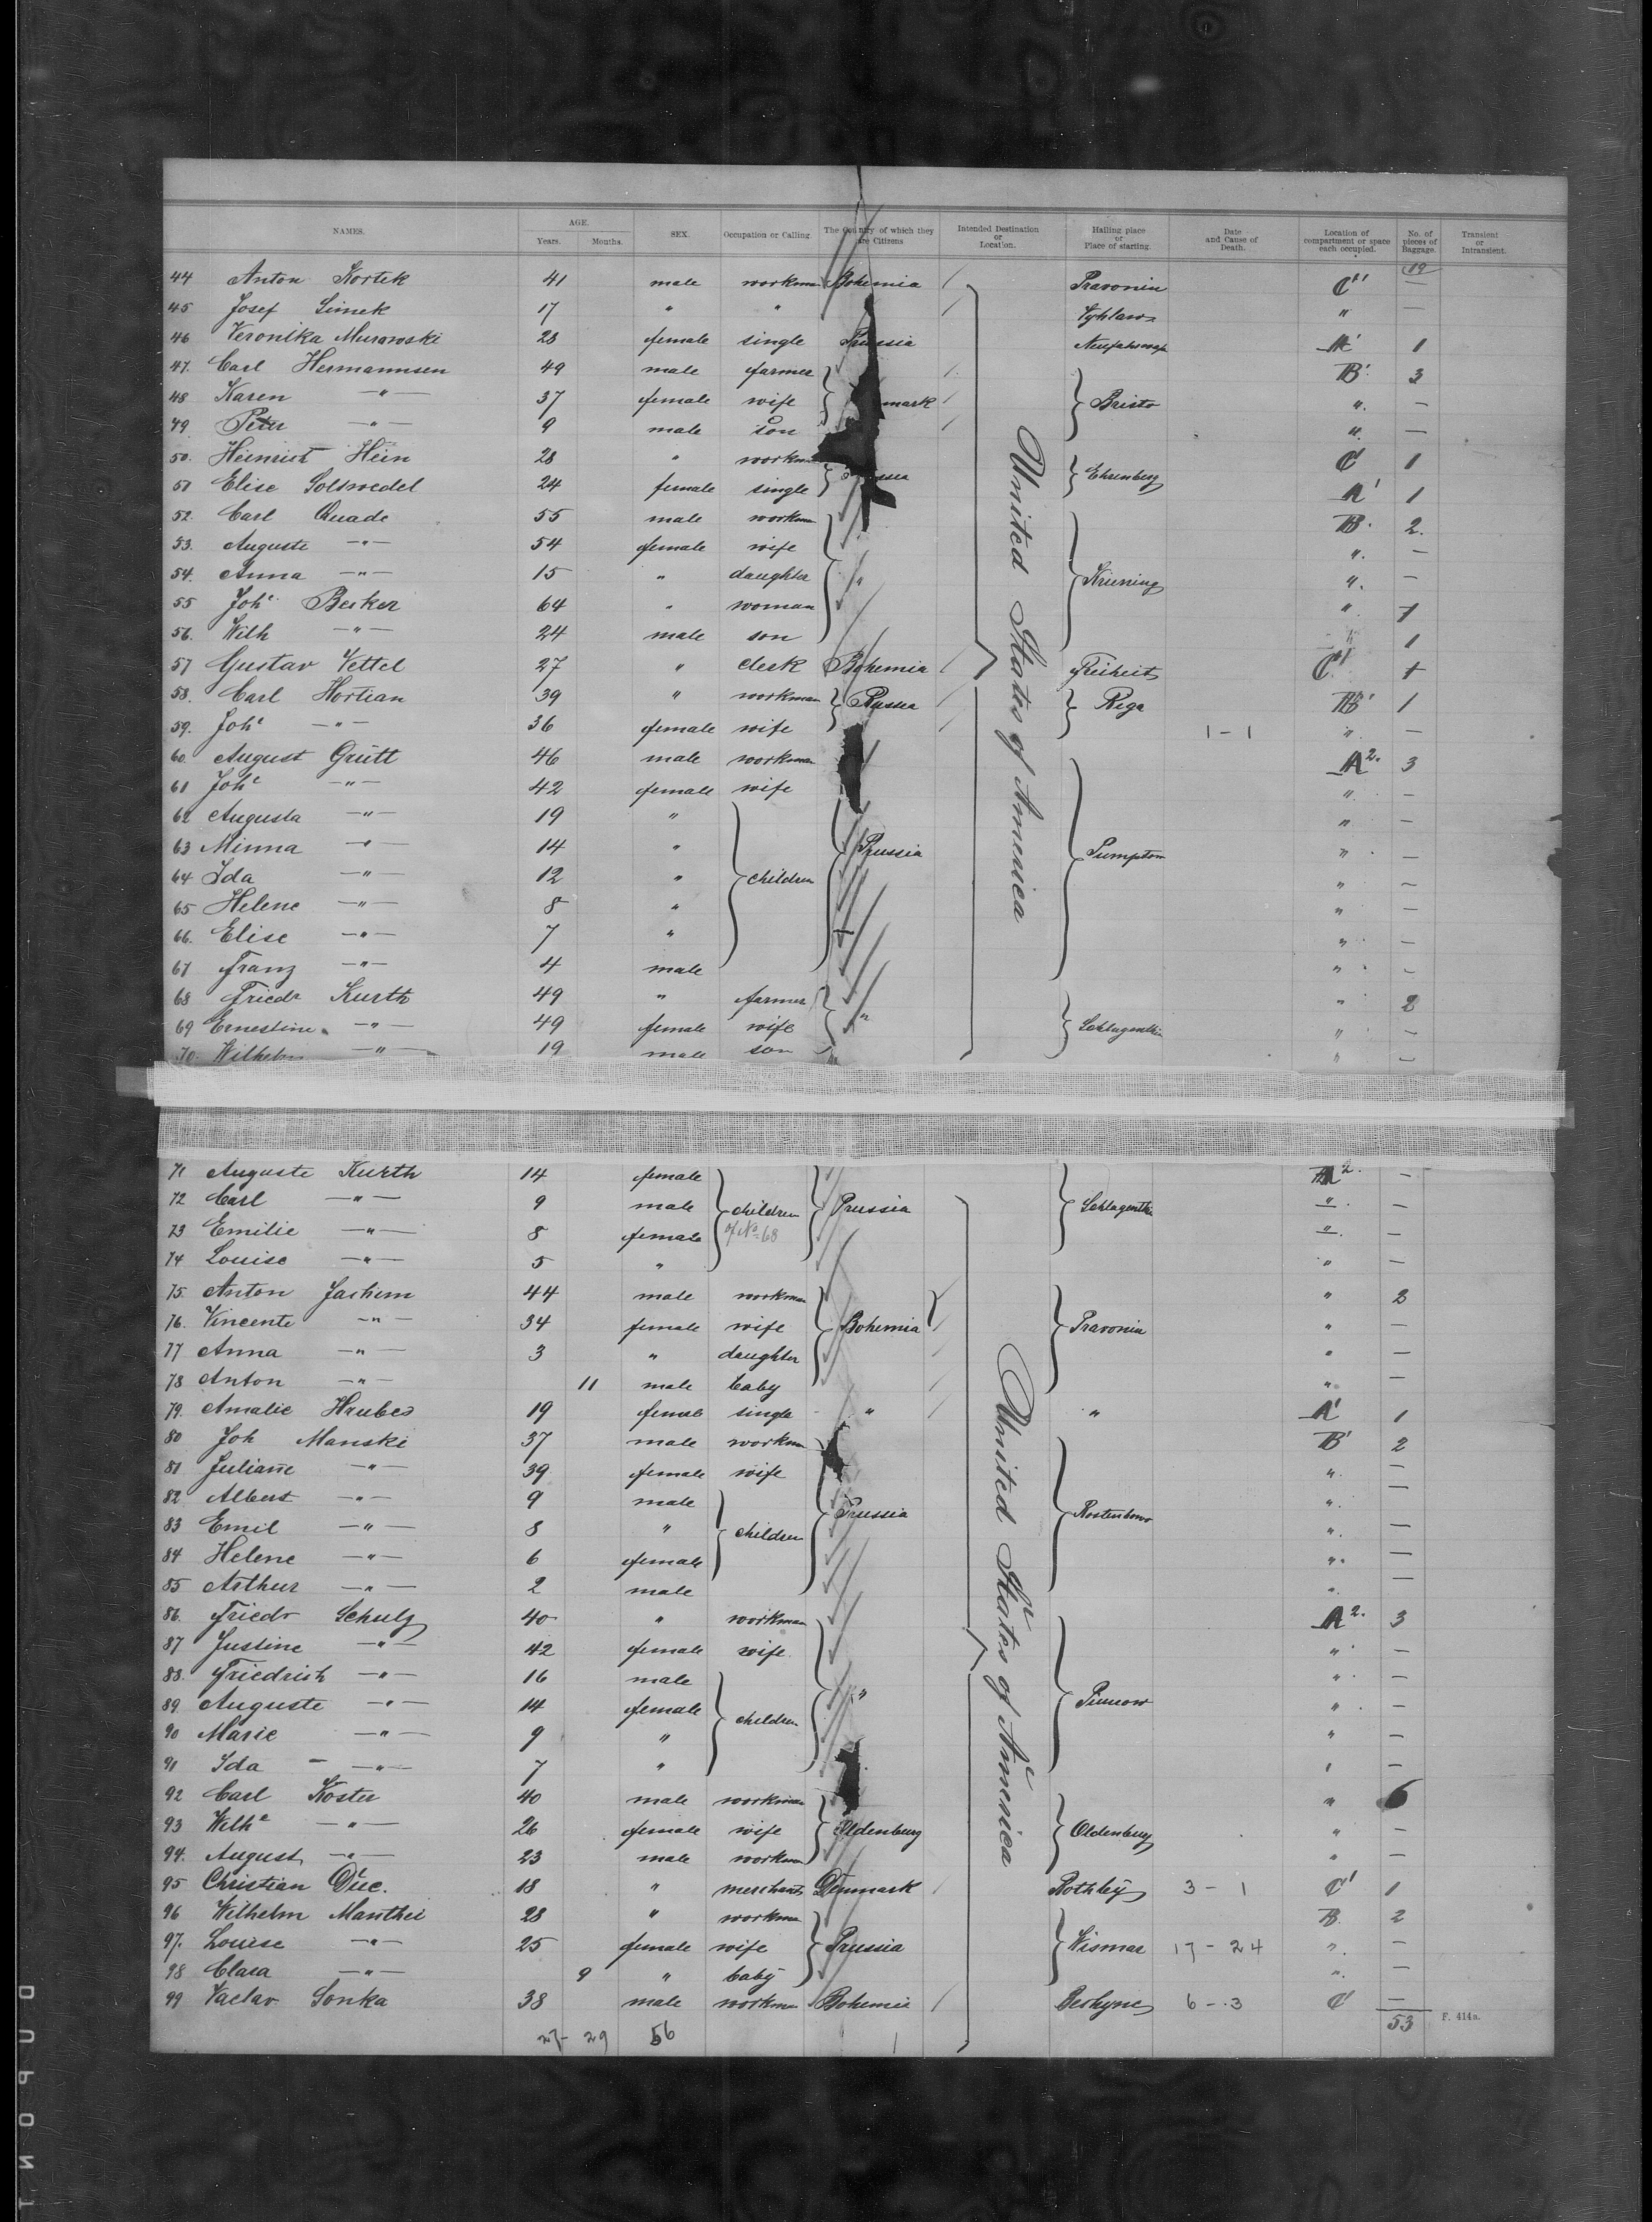 NAMES. AGE. Years. Months. SEX. Occupation or Calling The Country of which they are Citizens Intended Destination or Location. Hailing place or Place of starting. Date and Cause of Death. Location of compartment or space each occupied. No. of pieces of Baggage. Transient or Intransient.
19
44 Anton Kortek 41 male workman Bohemia Pravonin C'' —
45 Josef Simek 17 " " " —
46 Veronika Murawski 28 female single Prussia A' 1
47. Carl Hermannsen 49 male farmer B' 3
48 Karen —"— 37 female wife mark Bristo " —
49 Peter —"— 9 male son " —
50. Heinrich Hein 28 " workman C' 1
51 Elise Soltwedel 24 female single Ehrenberg A' 1
52. Carl Quade 55 male workman B' 2.
53. Auguste —"— 54 female wife " —
54. Anna —"— 15 " daughter " Kriening " —
55 Johe Becker 64 " woman " 1
56. Wilh —"— 24 male son " 1
57 Gustav Vettel 27 " clerk Bohemia Freiheit C' 1
58. Carl Hortian 39 " workman Russia Riga B' 1
59. Johe —"— 36 female wife 1 - 1 " —
60. August Grütt 46 male workman A2. 3
61 Johe —"— 42 female wife " —
62 Augusta —"— 19 " " —
63 Minna —"— 14 " Prussia Pumptow " —
64 Ida —"— 12 " children " —
65 Helene —"— 8 " " —
66. Elise —"— 7 " " —
67 Franz —"— 4 male " —
68 Friedr Kurth 49 " farmer " 2
69 Ernestine —"— 49 female wife " Schlagenthin " —
70. Wilhelm —"— 19 male son " —
United States of America
71 Auguste Kurth 14 female A2. —
72 Carl —"— 9 male children Prussia Schlagenthin " —
73 Emilie —"— 8 female of No 68 " —
74 Louise —"— 5 " " —
75. Anton Jachim 44 male workman " 2
76. Vincente —"— 34 female wife Bohemia Pravonin " —
77 Anna —"— 3 " daughter " —
78 Anton —"— 11 male baby " —
79. Amalie Hrubes 19 female single " " A' 1
80 Joh Manski 37 male workman B' 2
81 Juliane —"— 39 female wife " —
82. Albert —"— 9 male Prussia " —
83 Emil —"— 8 " children " —
84 Helene —"— 6 female " —
85 Arthur —"— 2 male " —
86. Friedr Schulz 40 " workman A2. 3
87 Justine —"— 42 female wife " —
88. Friedrich —"— 16 male " —
89 Auguste —"— 14 female children " " —
90 Marie —"— 9 " " —
91 Ida —"— 7 " " —
92 Carl Koster 40 male workman " 6
93 Wilhe —"— 26 female wife Oldenburg Oldenburg " —
94. August —"— 23 male workman " —
95 Christian Due. 18 " merchant Denmark 3 - 1 C' 1
96 Wilhelm Manthei 28 " workman B. 2
97. Louise —"— 25 female wife Prussia Wismar 17 - 24 " —
98 Clara —"— 9 " baby " —
99 Vaclav Sonka 38 male workman Bohemia 6 - 3 C' —
United States of America
27 - 29 56 53 F. 414a.